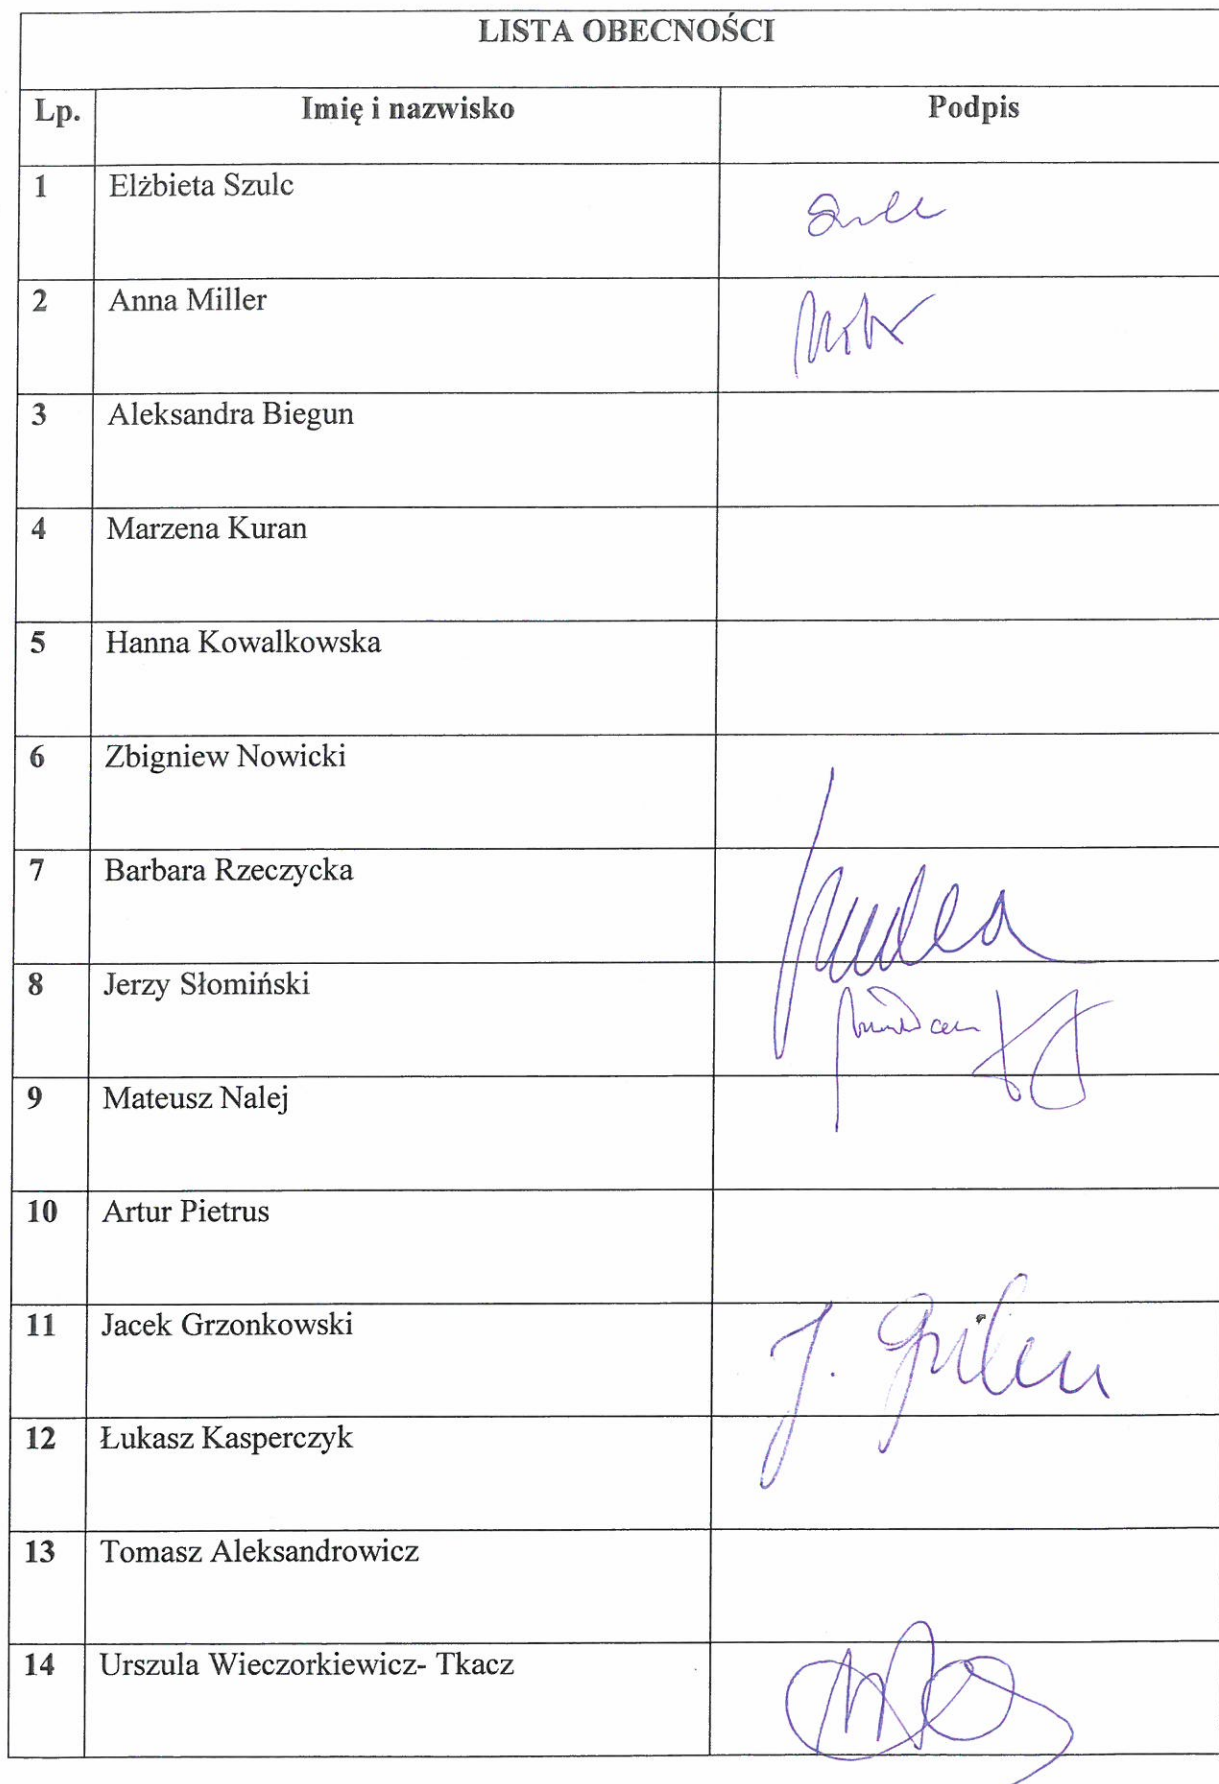 LISTA OBECNOŚCI
Lp. Imię i nazwisko Podpis
1 Elżbieta Szulc
2 Anna Miller
3 Aleksandra Biegun
4 Marzena Kuran
5 Hanna Kowalkowska
6 Zbigniew Nowicki
7 Barbara Rzeczycka
8 Jerzy Słomiński
9 Mateusz Nalej
10 Artur Pietrus
11 Jacek Grzonkowski
12 Łukasz Kasperczyk
13 Tomasz Aleksandrowicz
14 Urszula Wieczorkiewicz- Tkacz